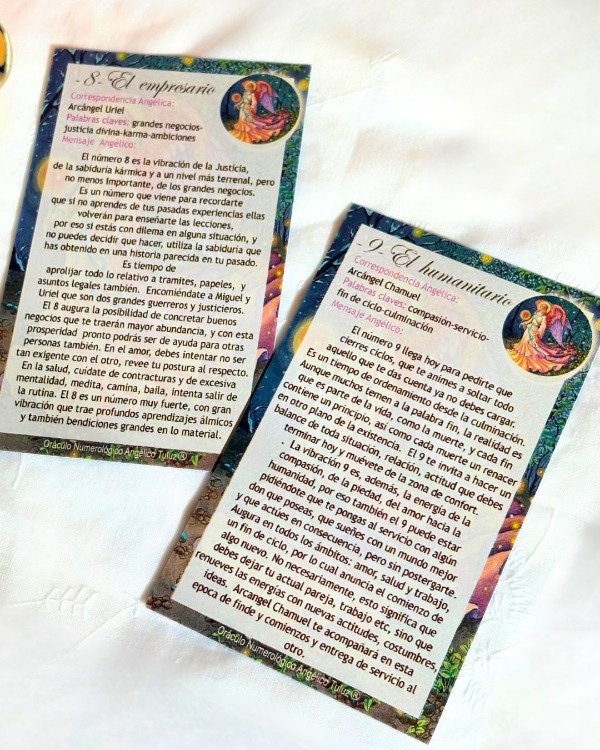 -8- El empresario
Correspondencia Angélica:
Arcángel Uriel
Palabras claves: grandes negocios-
justicia divina-karma-ambiciones
Mensaje Angélico:
El número 8 es la vibración de la Justicia,
de la sabiduría kármica y a un nivel más terrenal, pero
no menos importante, de los grandes negocios.
Es un número que viene para recordarte
que si no aprendes de tus pasadas experiencias ellas
volverán para enseñarte las lecciones,
por eso si estás con dilema en alguna situación, y
no puedes decidir que hacer, utiliza la sabiduría que
has obtenido en una historia parecida en tu pasado.
Es tiempo de
aprolijar todo lo relativo a tramites, papeles, y
asuntos legales también. Encomiéndate a Miguel y
Uriel que son dos grandes guerreros y justicieros.
El 8 augura la posibilidad de concretar buenos
negocios que te traerán mayor abundancia, y con esta
prosperidad pronto podrás ser de ayuda para otras
personas también. En el amor, debes intentar no ser
tan exigente con el otro, revee tu postura al respecto.
En la salud, cuídate de contracturas y de excesiva
mentalidad, medita, camina, baila, intenta salir de
la rutina. El 8 es un número muy fuerte, con gran
vibración que trae profundos aprendizajes álmicos
y también bendiciones grandes en lo material.
Oráculo Numerológico Angélico Tuluz ®
-9- El humanitario
Correspondencia Angélica:
Arcángel Chamuel
Palabras claves: compasión-servicio-
fin de ciclo-culminación
Mensaje Angélico:
El número 9 llega hoy para pedirte que
cierres ciclos, que te animes a soltar todo
aquello que te das cuenta ya no debes cargar.
Es un tiempo de ordenamiento desde la culminación.
Aunque muchos temen a la palabra fin, la realidad es
que es parte de la vida, como la muerte, y cada fin
contiene un principio, así como cada muerte un renacer
en otro plano de la existencia. El 9 te invita a hacer un
balance de toda situación, relación, actitud que debes
terminar hoy y muévete de la zona de confort.
· La vibración 9 es, además, la energía de la
compasión, de la piedad, del amor hacia la
humanidad, por eso también el 9 puede estar
pidiéndote que te pongas al servicio con algún
don que poseas, que sueñes con un mundo mejor
y que actúes en consecuencia, pero sin postergarte.
Augura en todos los ámbitos: amor, salud y trabajo,
un fin de ciclo, por lo cual anuncia el comienzo de
algo nuevo. No necesariamente, esto significa que
debes dejar tu actual pareja, trabajo etc, sino que
renueves las energías con nuevas actitudes, costumbres,
ideas. Arcángel Chamuel te acompañará en esta
epoca de finde y comienzos y entrega de servicio al
otro.
Oráculo Numerológico Angélico Tuluz ®